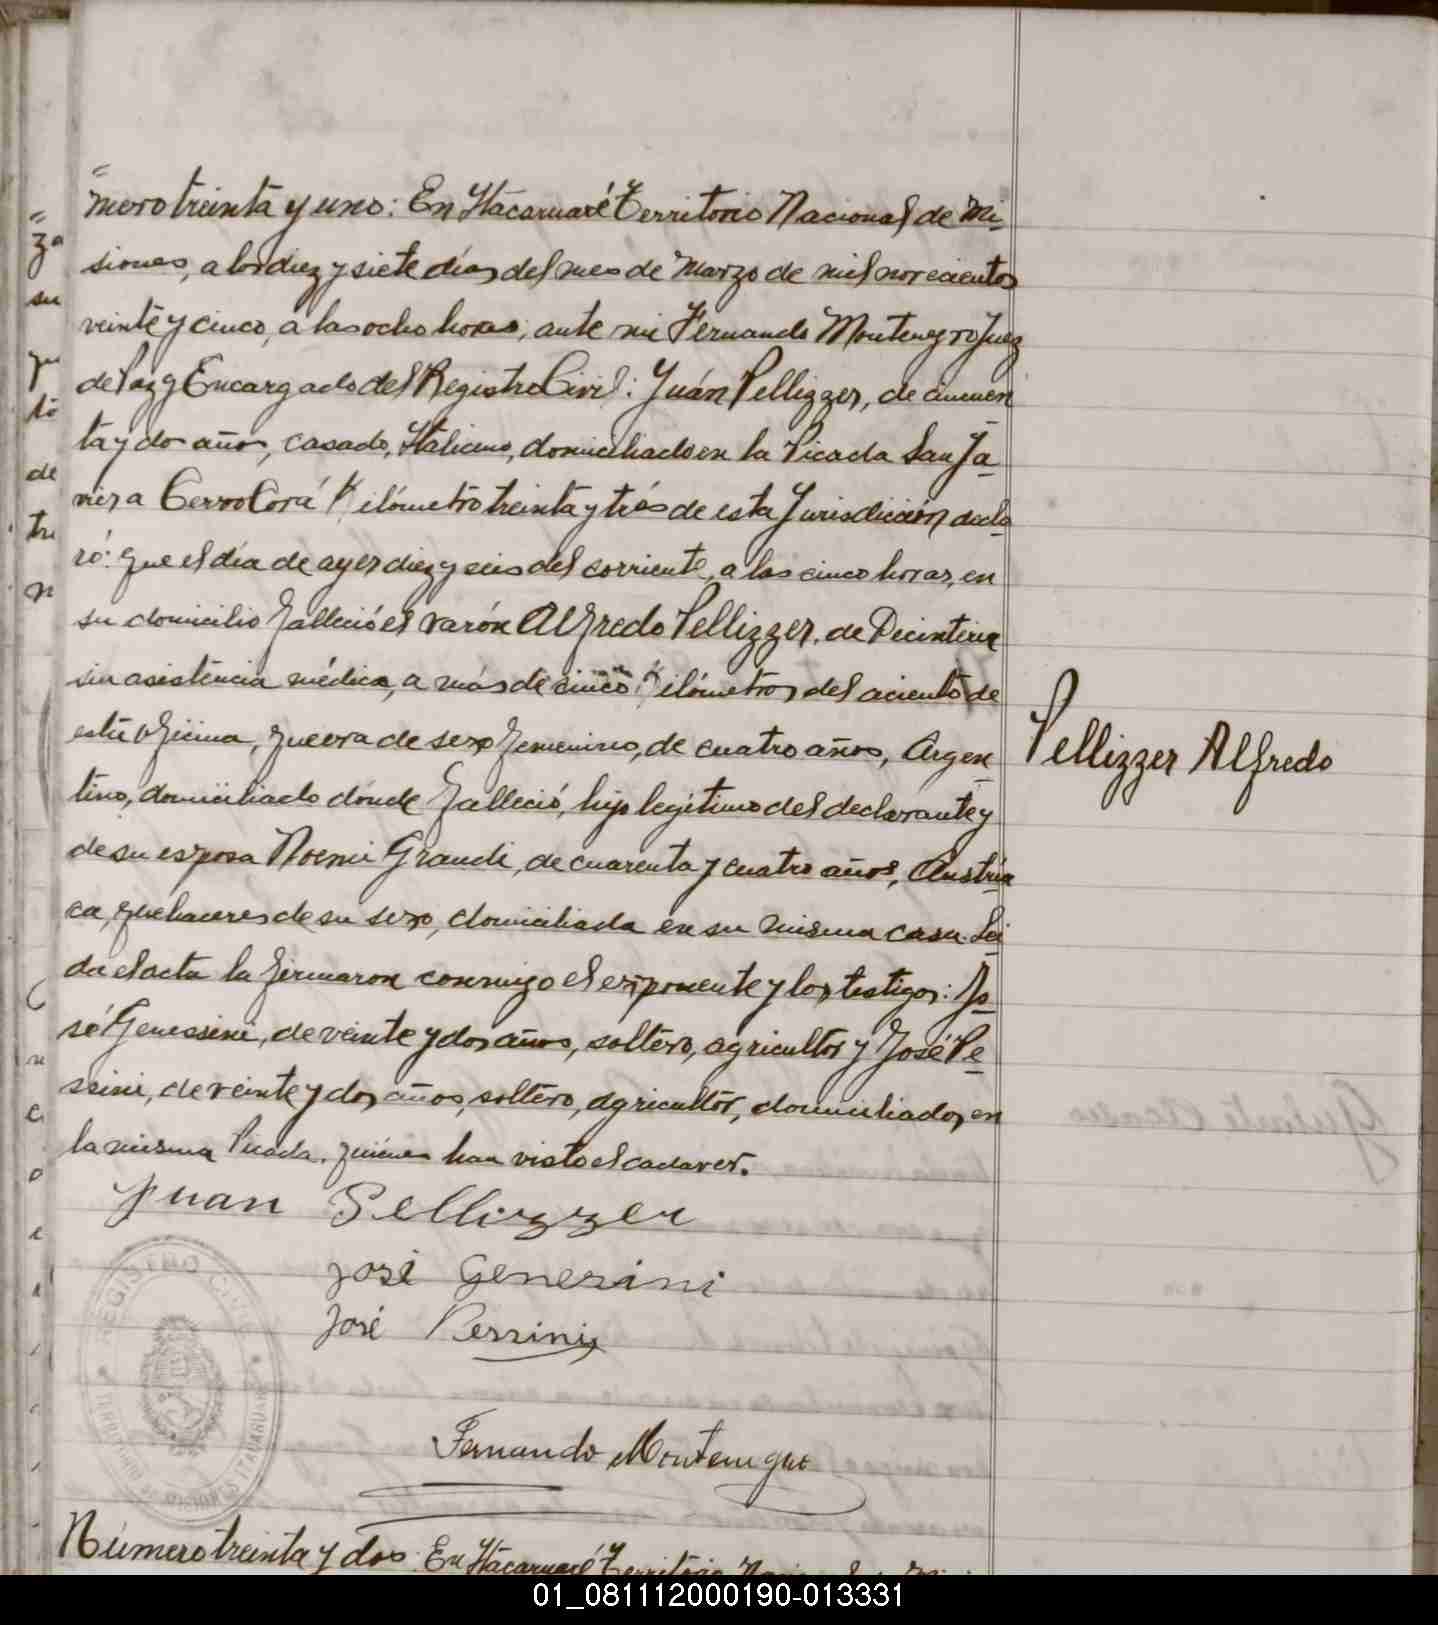 mero treinta y uno: En Itacaruaré Territorio Nacional de Mi-
siones, a los diez y siete días del mes de Marzo de mil novecientos
veinte y cinco, a las ocho horas, ante mi Fernando Montenegro Juez
de Paz y Encargado del Registro Civil: Juán Pellizzer, de cincuen
ta y dos años, casado, Italiano, domiciliado en la Picada San Ja-
vier a Cerro Corá Kilómetro treinta y trés de esta Jurisdicción decla-
ró: que el día de ayer diez y seis del corriente, a las cinco horas, en
su domicilio falleció el varón Alfredo Pellizzer, de Decinteria
sin asistencia médica, a más de cinco Kilómetros del aciento de
esta oficina, que era de sexo femenino, de cuatro años, Argen-
tino, domiciliado dónde falleció, hijo legítimo del declarante y
de su esposa Noemi Grandi, de cuarenta y cuatro años, Austria
ca, quehaceres de su sexo, domiciliada en su misma casa. Lei
da el acta la firmaron conmigo el exponente y los testigos: Jo-
sé Genessini, de veinte y dos años, soltero, agricultor y José Pe-
ssini, de veinte y dos años, soltero, agricultor, domiciliados en
la misma Picada. quiénes han visto el cadaver.
Pellizzer Alfredo
Juan Pellizzer
José Genesini
José Pessini
REGISTRO CIVIL
TERRITORIO DE MISIONES ITACARUARE
Fernando Montenegro
Número treinta y dos: En Itacaruaré Territorio
01_081112000190-013331